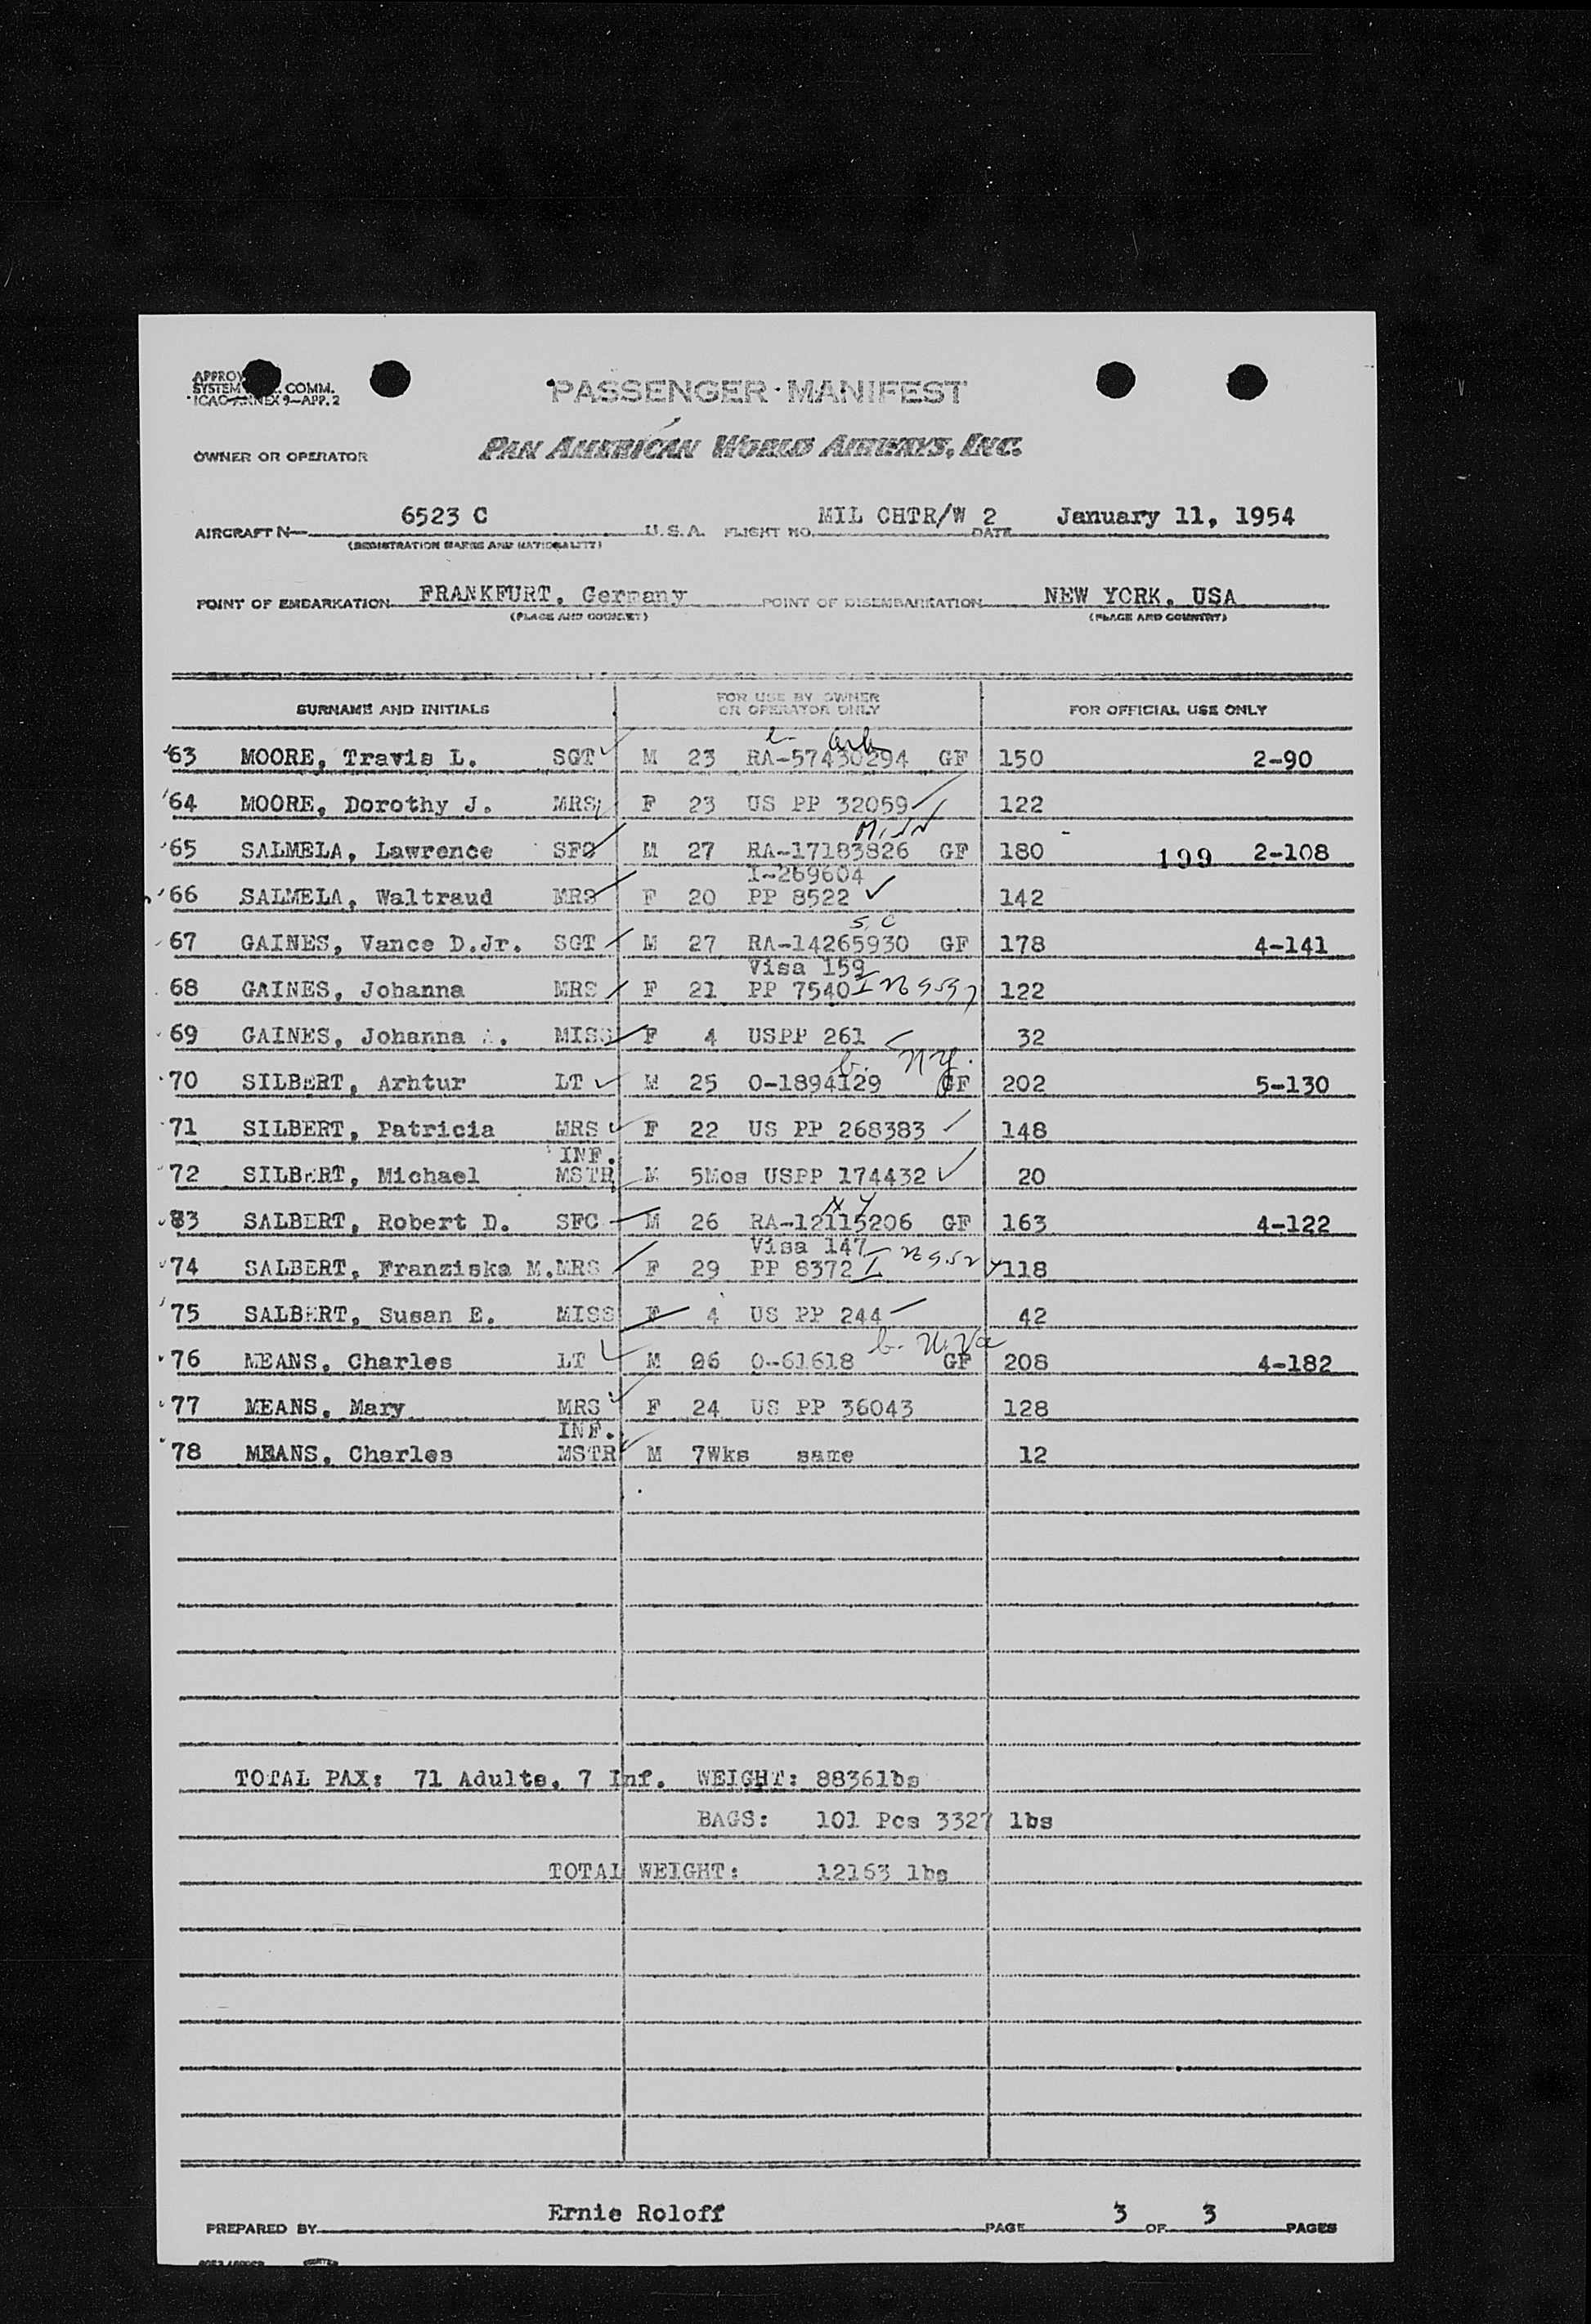 PASSENGER MANIFEST
SYSTEM COMM.
ICAO ANNEX 9—APP. 2
OWNER OR OPERATOR PAN AMERICAN WORLD AIRWAYS, INC.
AIRCRAFT N 6523 C U.S.A. FLIGHT NO. MIL CHTR/W 2 DATE January 11, 1954
(REGISTRATION MARKS AND NATIONALITY)
POINT OF EMBARKATION FRANKFURT, Germany POINT OF DISEMBARKATION NEW YORK, USA
(PLACE AND COUNTRY) (PLACE AND COUNTRY)
SURNAME AND INITIALS FOR USE BY OWNER OR OPERATOR ONLY FOR OFFICIAL USE ONLY
Ark
63 MOORE, Travis L. SGT M 23 RA-57430294 GF 150 2-90
64 MOORE, Dorothy J. MRS F 23 US PP 32059 122
Minn
65 SALMELA, Lawrence SFC M 27 RA-17183826 GF 180 199 2-108
I-269604
66 SALMELA, Waltraud MRS F 20 PP 8522 142
S.C
67 GAINES, Vance D.Jr. SGT M 27 RA-14265930 GF 178 4-141
Visa 159
68 GAINES, Johanna MRS F 21 PP 7540 122
69 GAINES, Johanna MISS F 4 USPP 261 32
b. N.Y.
70 SILBERT, Arhtur LT M 25 O-1894129 GF 202 5-130
71 SILBERT, Patricia MRS F 22 US PP 268383 148
INF.
72 SILBERT, Michael MSTR M 5Mos USPP 174432 20
NY
83 SALBERT, Robert D. SFC M 26 RA-12115206 GF 163 4-122
Visa 147
74 SALBERT, Franziska M. MRS F 29 PP 8372 118
75 SALBERT, Susan E. MISS F 4 US PP 244 42
b. W.Va
76 MEANS, Charles LT M 26 O-61618 GF 208 4-182
77 MEANS, Mary MRS F 24 US PP 36043 128
INF.
78 MEANS, Charles MSTR M 7Wks same 12
TOTAL PAX: 71 Adults, 7 Inf. WEIGHT: 8836lbs
BAGS: 101 Pcs 3327 lbs
TOTAL WEIGHT: 12163 lbs
PREPARED BY Ernie Roloff PAGE 3 OF 3 PAGES